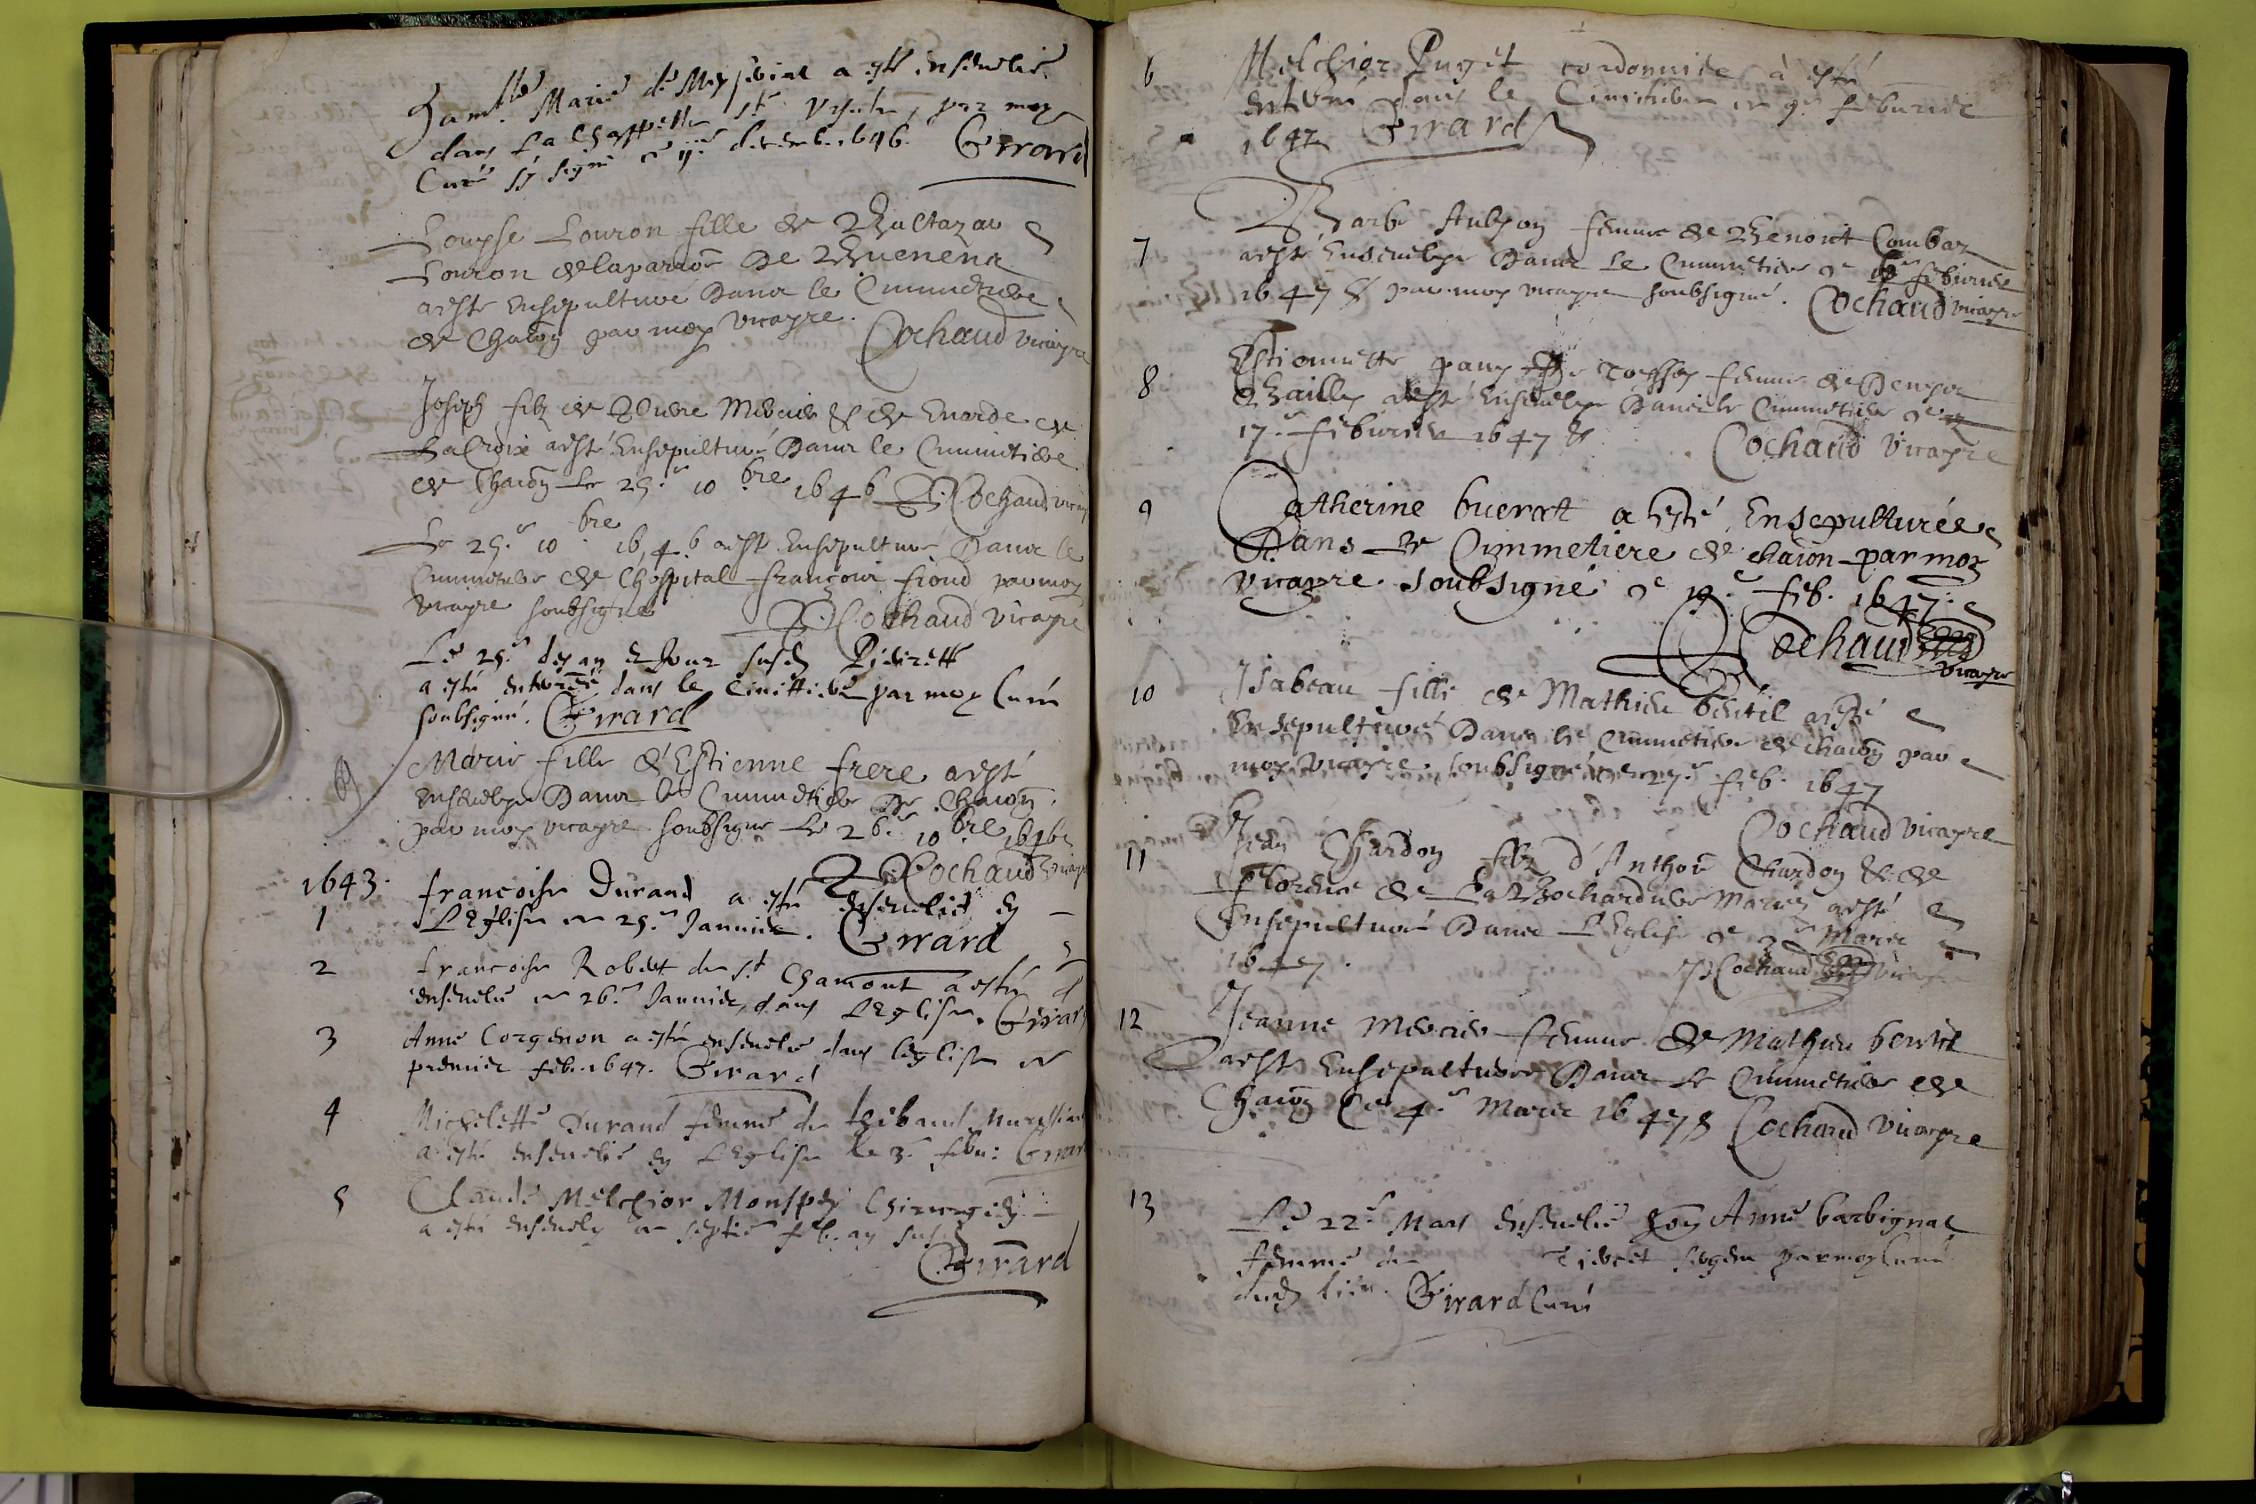 Dam.lle Marie de a esté ensevelie
dans la Chappelle S.te Ursule, par moy
Curé ss signé decemb. 1646. Girard
Louyse Louron fille de Baltazar
Louron de la parroe. De
aesté Ensepulturé Dans le Cimmetiere
de Charon par moy vicayre. Cochaud vicayre
Joseph filz de Mercier & de de
La Croix aesté Ensepulturé Dans le Cimmetiere
de Charon Le 25.e 10.bre 1646 Cochaud vicay
Le 25.e 10.bre 1646 aesté Ensepulturé Dans le
Cimmetiere de Lhospital françois par moy
vicayre soubsigne Cochaud vicayre
Le 25.e des an & Jour susd Pierrette
a esté enterrée dans le par moy Curé
soubsigné. Girard
Marie fille d'Estienne frere aesté
ensevelye Dans le Cimmetiere De Charon
par moy vicayre soubsigne Le 26.e 10.bre 1646
Cochaud vicayre
1643.
1 francoise Durand a esté ensevelie en
L'Eglise ce 25.e Janvier. Girard
2 francoise Robert de S.t Chamont a esté
ensevelie ce 26.e Janvier, dans L'Eglise. Girard
3 Anne Corgenon a esté ensevelie dans leglise ce
premier feb. 1647. Girard
4 Michelette Durand femme de Thibaud
a esté ensevelie en L'Eglise le 3.e febu: Girard
5 Claude Melchior Monspey Chirurgien
a esté ensevely ce septie feb. an susd
Girard
6 Melchior Puget cordonnier à esté
enterré dans le Cimitiere ce 9.e feburier
1647 Girard
7 Barbe femme de Benoict Combar
aesté Ensevelye Dans Le Cimmetiere ce feburier
1647 & par moy vicayre soubsigné. Cochaud vicayre
8 Estiennette femme de Denys
aesté Ensevelye Dans le Cimmetiere ce
17.e feburier 1647 & Cochaud vicayre
9 Catherine buerat a esté Ensepulturée
Dans Le Cimmetiere de charon par moy
vicayre soubsigné ce feb. 1647.
Cochaud
vicayre
10 Isabeau fille de Mathieu aesté
Ensepulturé Dans le Cimmetiere de charon par
moy vicayre soubsigné ce 27.e feb. 1647
Cochaud vicayre
11 Jean Chardon filz d'Anthoe Chardon & de
florence de La Mariés aesté
Ensepulturé Dans L'Eglise ce 2.e Mars
1647. Cochaud vicayre
12 Jeanne Mercier femme de Mathieu
aesté Ensepulturee Dans Le Cimmetiere de
Charon Ce 4.e Mars 1647 & Cochaud vicayre
13 Le 22.e Mars ensevelie Anne barbignat
femme de par moy Curé
dud lieu. Girard Curé